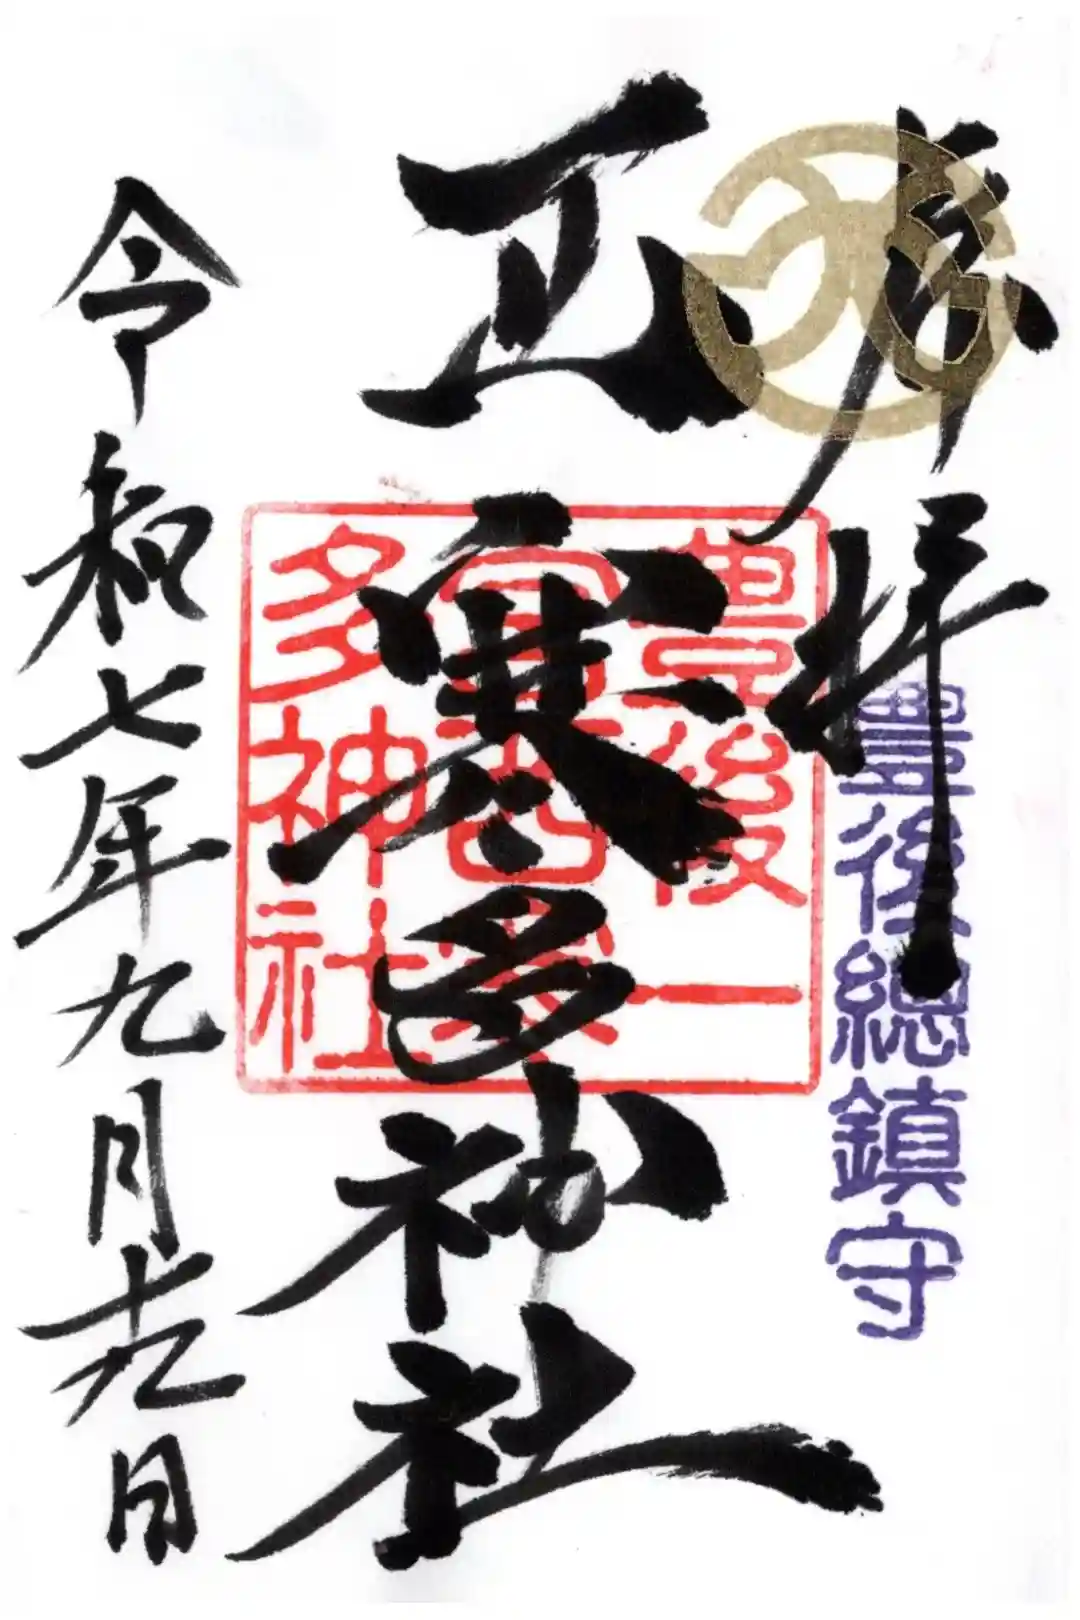 奉拝
豊後總鎮守
西寒多神社
豊後一
宮西寒
多神社
令和七年九月十九日